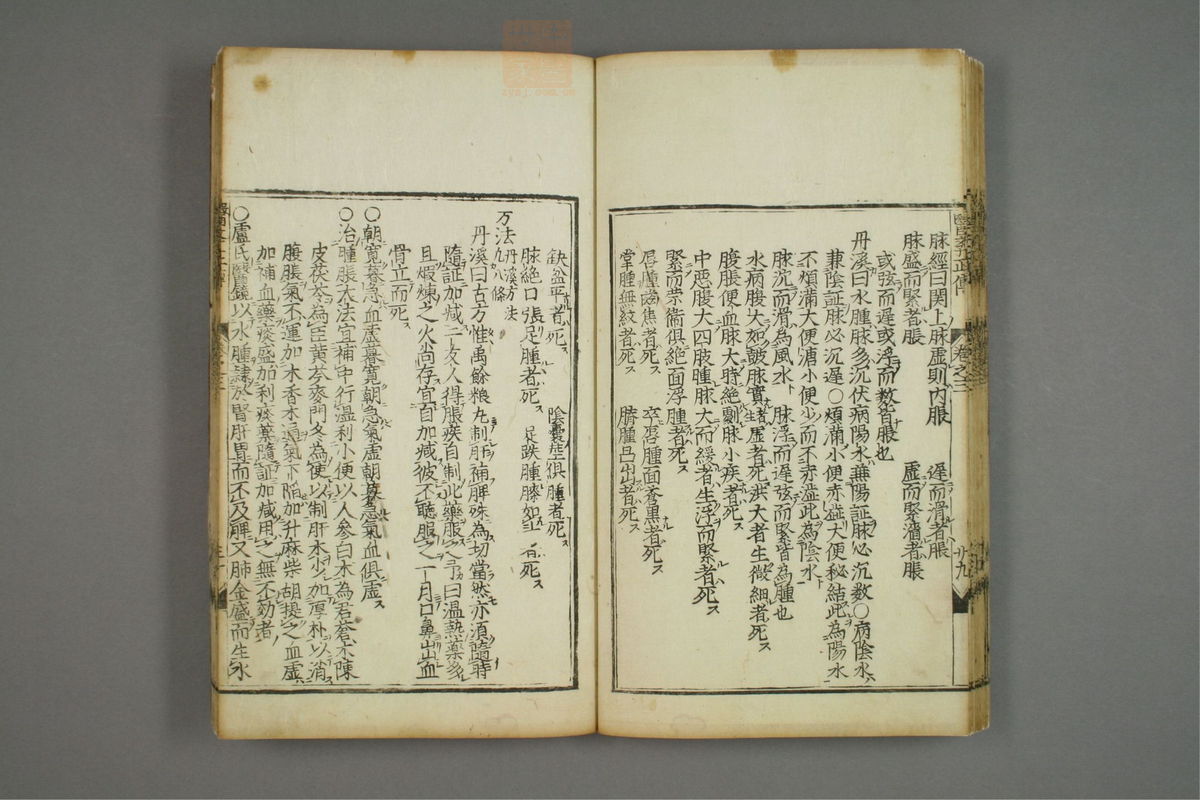 脉經曰関上脉虚則内脹　遅而滑者脹
脉盛而緊者脹　虚而緊濇者脹
或弦而遅或浮而数皆脹也
丹溪曰水腫脉多沉伏病陽水兼陽証脉必沉数〇病陰水
兼陰証脉必沉遅〇煩滿小便赤澁大便秘結此為陽水
不煩滿大便溏小便少而不赤澁此為陰水
脉沉而滑為風水　脉浮而遅弦而緊皆為腫也
水病腹大如皷脉實者生虚者死洪大者生微細者死
腹脹便血脉大時絶劇脉小疾者死
中悪腹大四肢腫脉大而緩者生浮而緊者死
緊而栄衛俱絶面浮腫者死
唇腫歯焦者死　卒腫面蒼黒者死
掌腫無紋者死　臍腫凸出者死
缺盆平者死　陰囊莖俱腫者死
脉絶口張足腫者死　足趺腫膝如斗者死
方法丹溪方法
九八條
丹溪曰古方惟禹餘粮丸制肝補脾殊為切當然亦須隨時
隨証加减一友人得脹疾自制此藥服之予曰温熱藥多
且煆煉之火尚存宜自加减彼不聴服之一月口鼻出血
骨立而死
〇朝寛暮急血虚暮寛朝急氣虚朝暮急氣血俱虚
〇治腫脹大法宜補中行温利小便以人參白朮為君蒼朮陳
皮茯苓為臣黄芩麥門冬為使以制肝木少加厚朴以消
腹脹氣不運加木香木通氣下陥加升麻柴胡提之血虚
加補血藥痰盛加利痰藥隨証加减用之無不効者
〇盧氏醫鏡以水腫隷於腎肝胃而不及脾又肺金盛而生水
巻之三
廿九